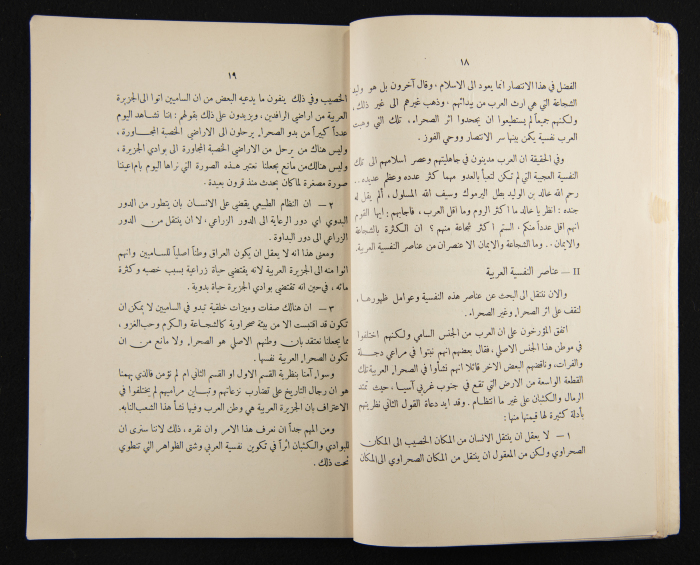 ١٨
الفضل في هذا الانتصار انما يعود الى الاسلام ، وقال آخرون بل هو وليد
الشجاعة التي هي ارث العرب من بيدائهم ، وذهب غيرهم الى غير ذلك .
ولكنهم جميعاً لم يستطيعوا ان يجحدوا اثر الصحراء ، تلك التي وهبت
العرب نفسية يكمن بينها سر الانتصار ووحي الفوز .
وفي الحقيقة ان العرب مدينون في جاهليتهم وعصر اسلامهم الى تلك
النفسية العجيبة التي لم تكن لتعبأ بالعدو مهما كثر عدده وعظم عديده ..
رحم الله خالد بن الوليد بطل اليرموك وسيف الله المسلول ، ألم يقل له
جنده : انظر يا خالد ما اكثر الروم وما اقل العرب ، فاجابهم : ايها القوم
انهم اقل عدداً منكم ، الستم اكثر شجاعة منهم ؟ ان الكثرة بالشجاعة
والايمان . . وما الشجاعة والايمان الا عنصران من عناصر النفسية العربية.
II — عناصر النفسية العربية
والان ننتقل الى البحث عن عناصر هذه النفسية وعوامل ظهورها ،
لنقف على اثر الصحراء وغير الصحراء .
اتفق المؤرخون على ان العرب من الجنس السامي ولكنهم اختلفوا
في موطن هذا الجنس الاصلي ، فقال بعضهم انهم نبتوا في مراعي دجلة
والفرات، وناقضهم البعض الاخر قائلا انهم نشأوا في الصحراء العربية تلك
القطعة الواسعة من الارض التي تقع في جنوب غربي آسيا ، حيث تمتد
الرمال والكثبان على غير ما انتظام . وقد ايد دعاة القول الثاني نظريتهم
بأدلة كثيرة لها قيمتها منها :
١ — لا يعقل ان ينتقل الانسان من المكان الخصيب الى المكان
الصحراوي ولكن من المعقول ان ينتقل من المكان الصحراوي الى المكان
١٩
الخصيب وفي ذلك ينفون ما يدعيه البعض من ان الساميين اتوا الى الجزيرة
العربية من اراضي الرافدين ، ويزيدون على ذلك بقولهم : اننا نشاهد اليوم
عدداً كبيراً من بدو الصحراء يرحلون الى الاراضي الخصبة المجاورة ،
وليس هناك من يرحل من الاراضي الخصبة المجاورة الى بوادي الجزيرة ،
وليس هنالك من مانع يجعلنا نعتبر هذه الصورة التي نراها اليوم بام اعيننا
صورة مصغرة لما كان يحدث منذ قرون بعيدة .
٢ — ان النظام الطبيعي يقضي على الانسان بان يتطور من الدور
البدوي اي دور الرعاية الى الدور الزراعي ، لا ان ينتقل من الدور
الزراعي الى دور البداوة .
ومعنى هذا انه لا يعقل ان يكون العراق وطناً اصلياً للساميين وانهم
اتوا منه الى الجزيرة العربية لانه يقتضي حياة زراعية بسبب خصبه وكثرة
مائه ، في حين انه تقتضي بوادي الجزيرة حياة بدوية .
٣ — ان هنالك صفات وميزات خلقية تبدو في الساميين لا يمكن ان
تكون قد اقتبست الا من بيئة صحراوية كالشجاعة والكرم وحب الغزو ،
مما يجعلنا نعتقد بان وطنهم الاصلي هو الصحراء ولا مانع من ان
تكون الصحراء العربية نفسها .
وسواء آمنا بنظرية القسم الاول او القسم الثاني ام لم نؤمن فالذي يهمنا
هو ان رجال التاريخ على تضارب نزعاتهم وتباين مراميهم لم يختلفوا في
الاعتراف بان الجزيرة العربية هي وطن العرب وفيها نشأ هذا الشعب النابه.
ومن المهم جداً ان نعرف هذا الامر وان نقره ، ذلك لاننا سنرى ان
للبوادي والكثبان اثراً في تكوين نفسية العربي وشتى الظواهر التي تنطوي
تحت ذلك .